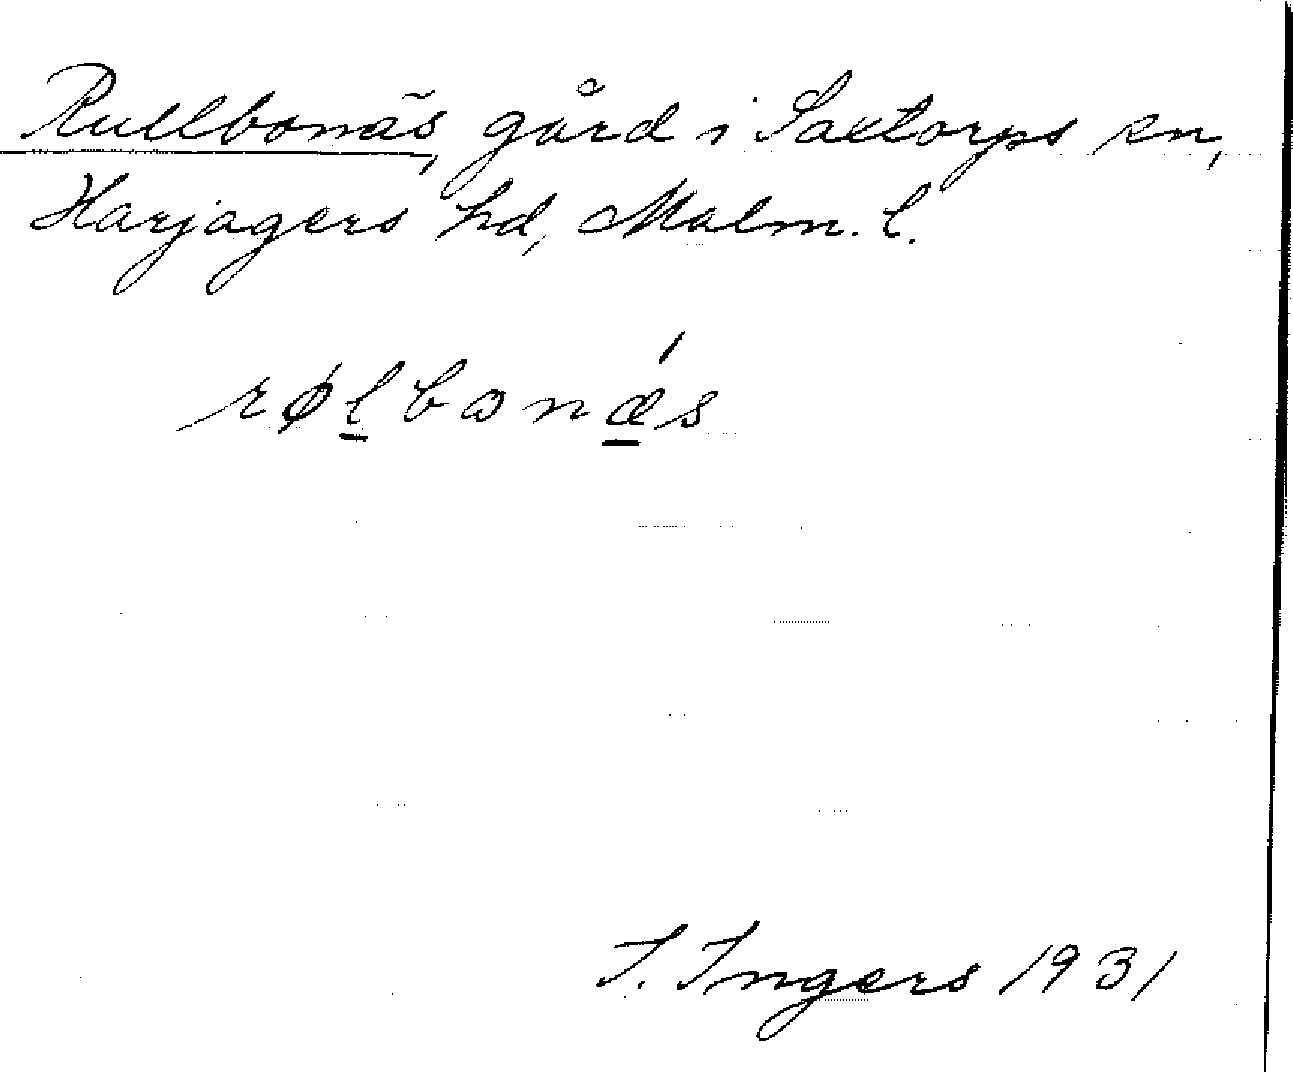 Rullbonäs, gård i Saxtorps sn,
Harjagers hd, Malm. l.
røl̲bonǽ̲s
I. Ingers 1931